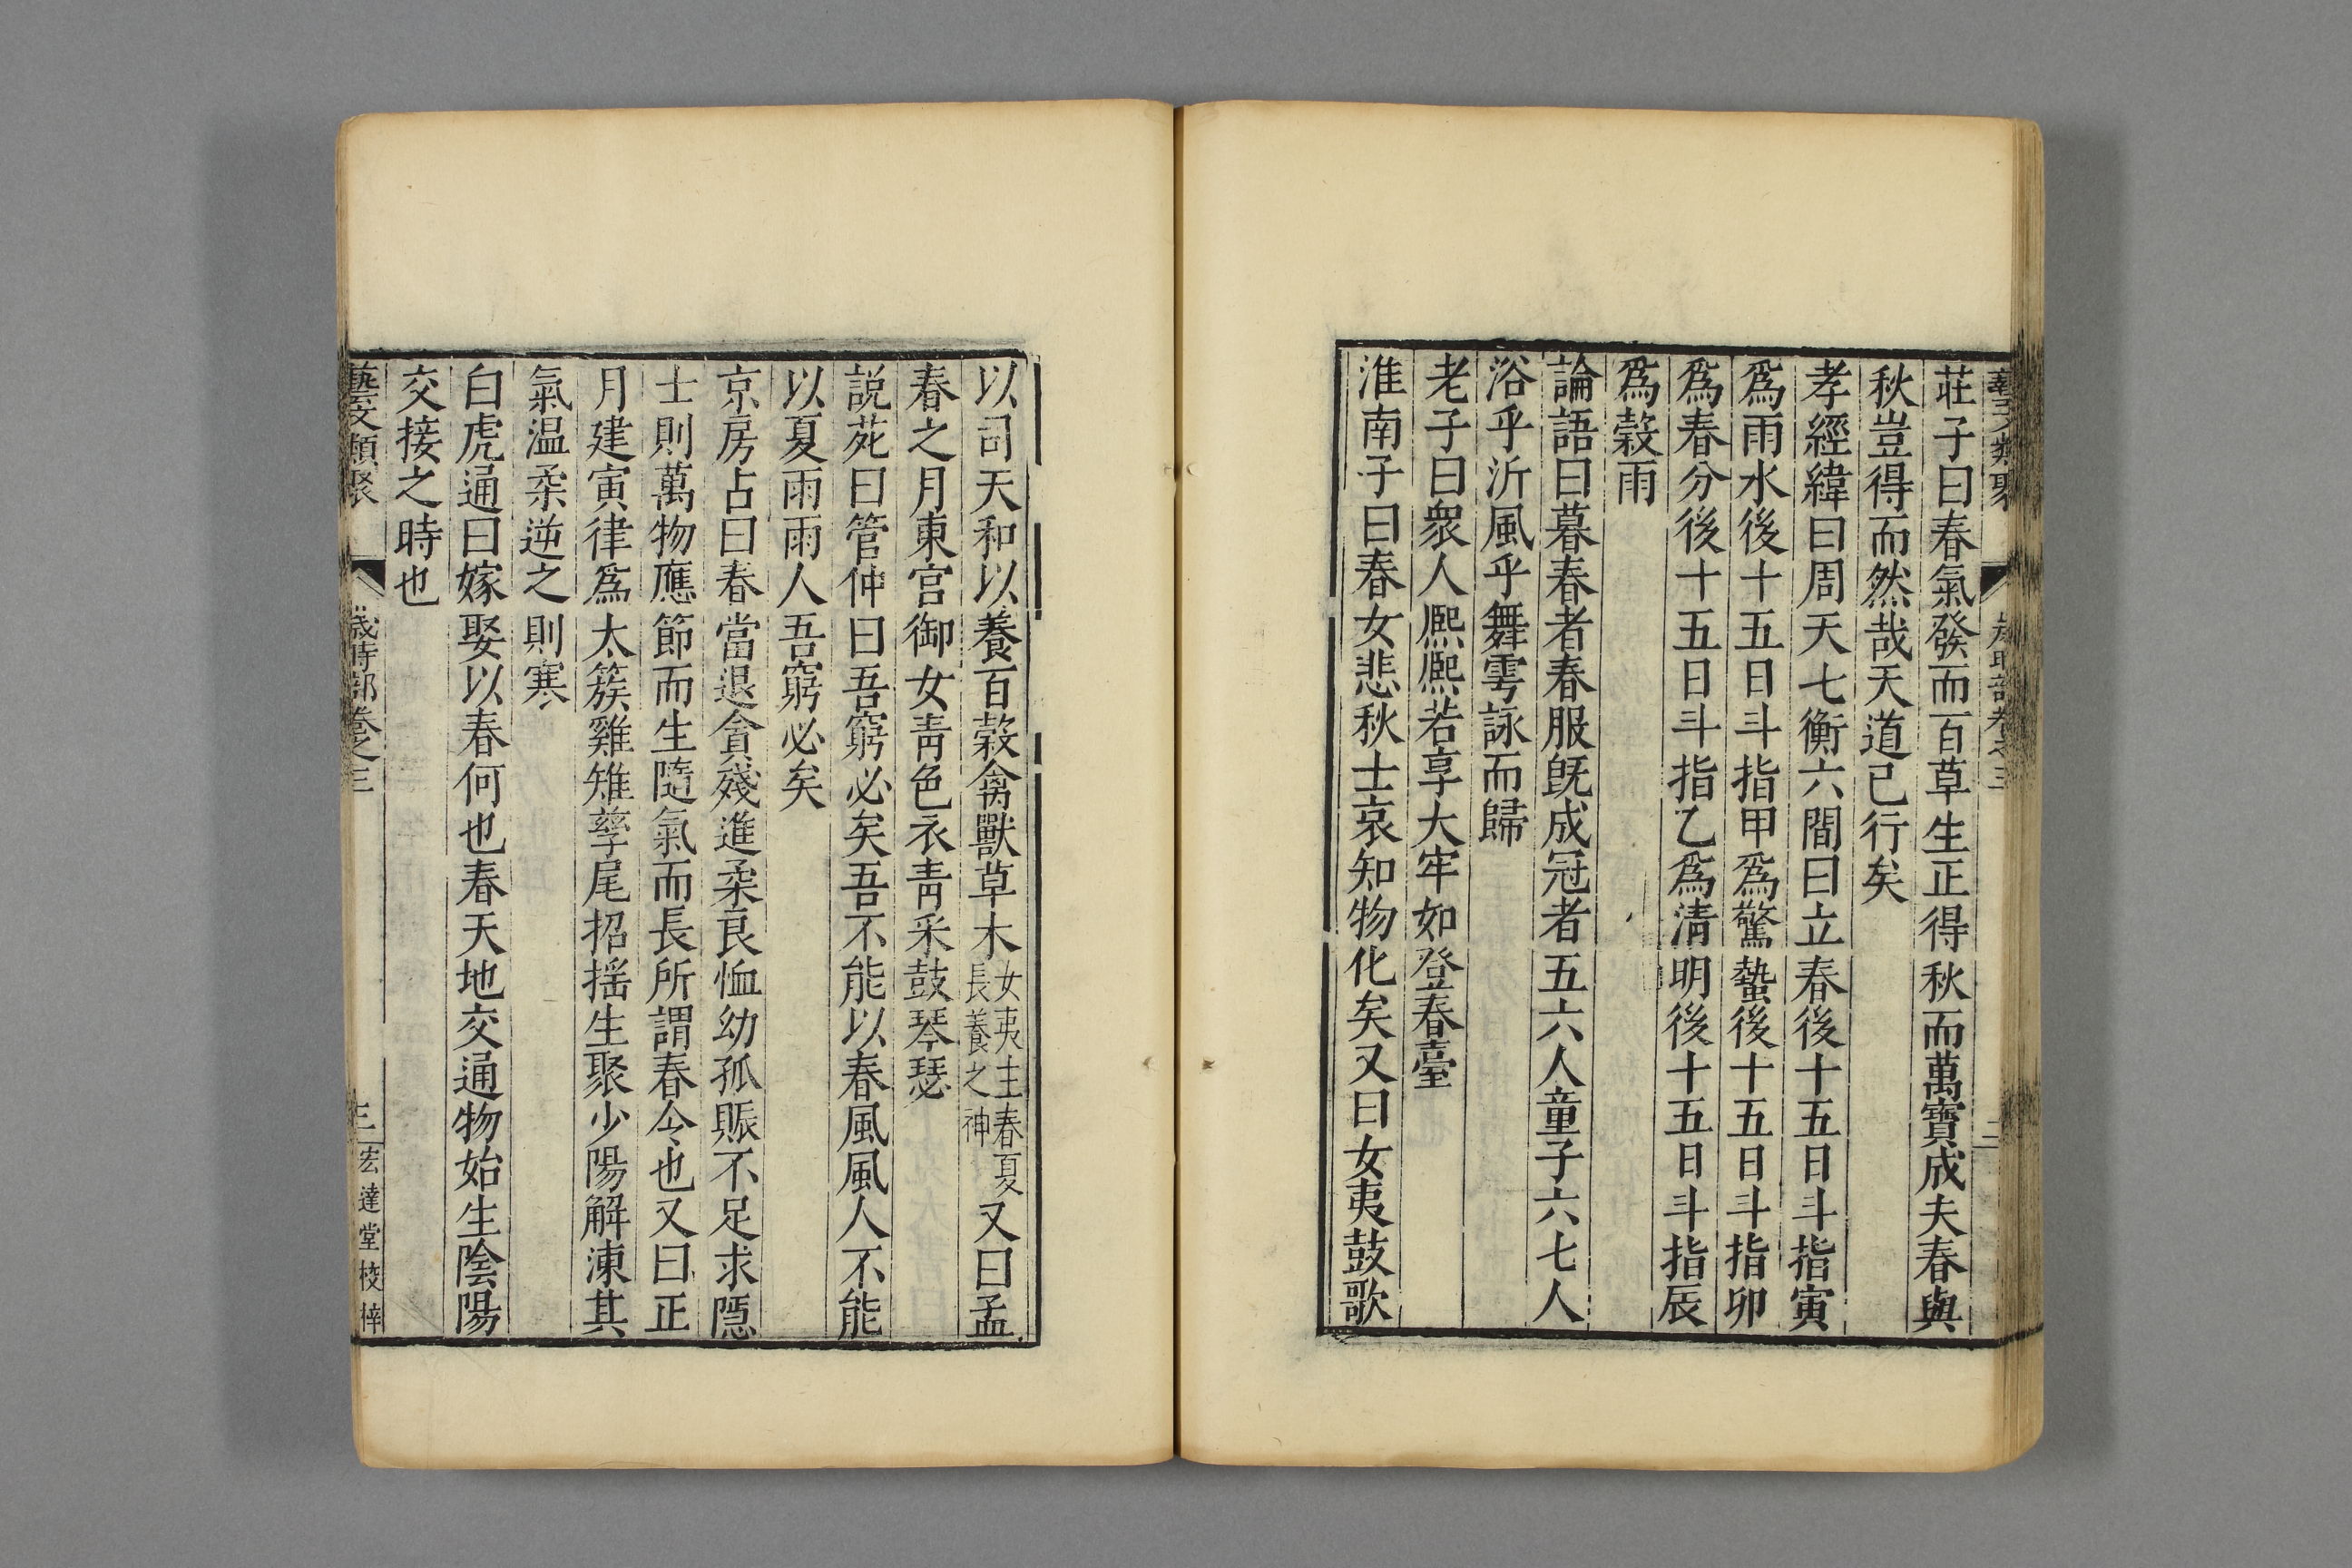 莊子曰春氣發而百草生正得秋而萬寶成夫春與
秋豈得而然哉天道已行矣
孝經緯曰周天七衡六間曰立春後十五日斗指寅
爲雨水後十五日斗指甲爲驚蟄後十五日斗指卯
爲春分後十五日斗指乙爲清明後十五日斗指辰
爲穀雨
論語曰暮春者春服旣成冠者五六人童子六七人
浴乎沂風乎舞雩詠而歸
老子曰衆人熈熈若享大牢如登春臺
淮南子曰春女悲秋士哀知物化矣又曰女夷鼓歌
以司天和以養百穀禽獸草木女夷主春夏長養之神又曰孟
春之月東宮御女靑色衣靑采鼓琴瑟
説苑曰管仲曰吾窮必矣吾不能以春風風人不能
以夏雨雨人吾窮必矣
京房占曰春當退貪殘進柔良恤幼孤賑不足求隱
士則萬物應節而生隨氣而長所謂春令也又曰正
月建寅律爲太簇雞雉孳尾招摇生聚少陽解凍其
氣温柔逆之則寒
白虎通曰嫁娶以春何也春天地交通物始生陰陽
交接之時也
藝文類聚 歲時部卷之三 三 宏達堂校梓